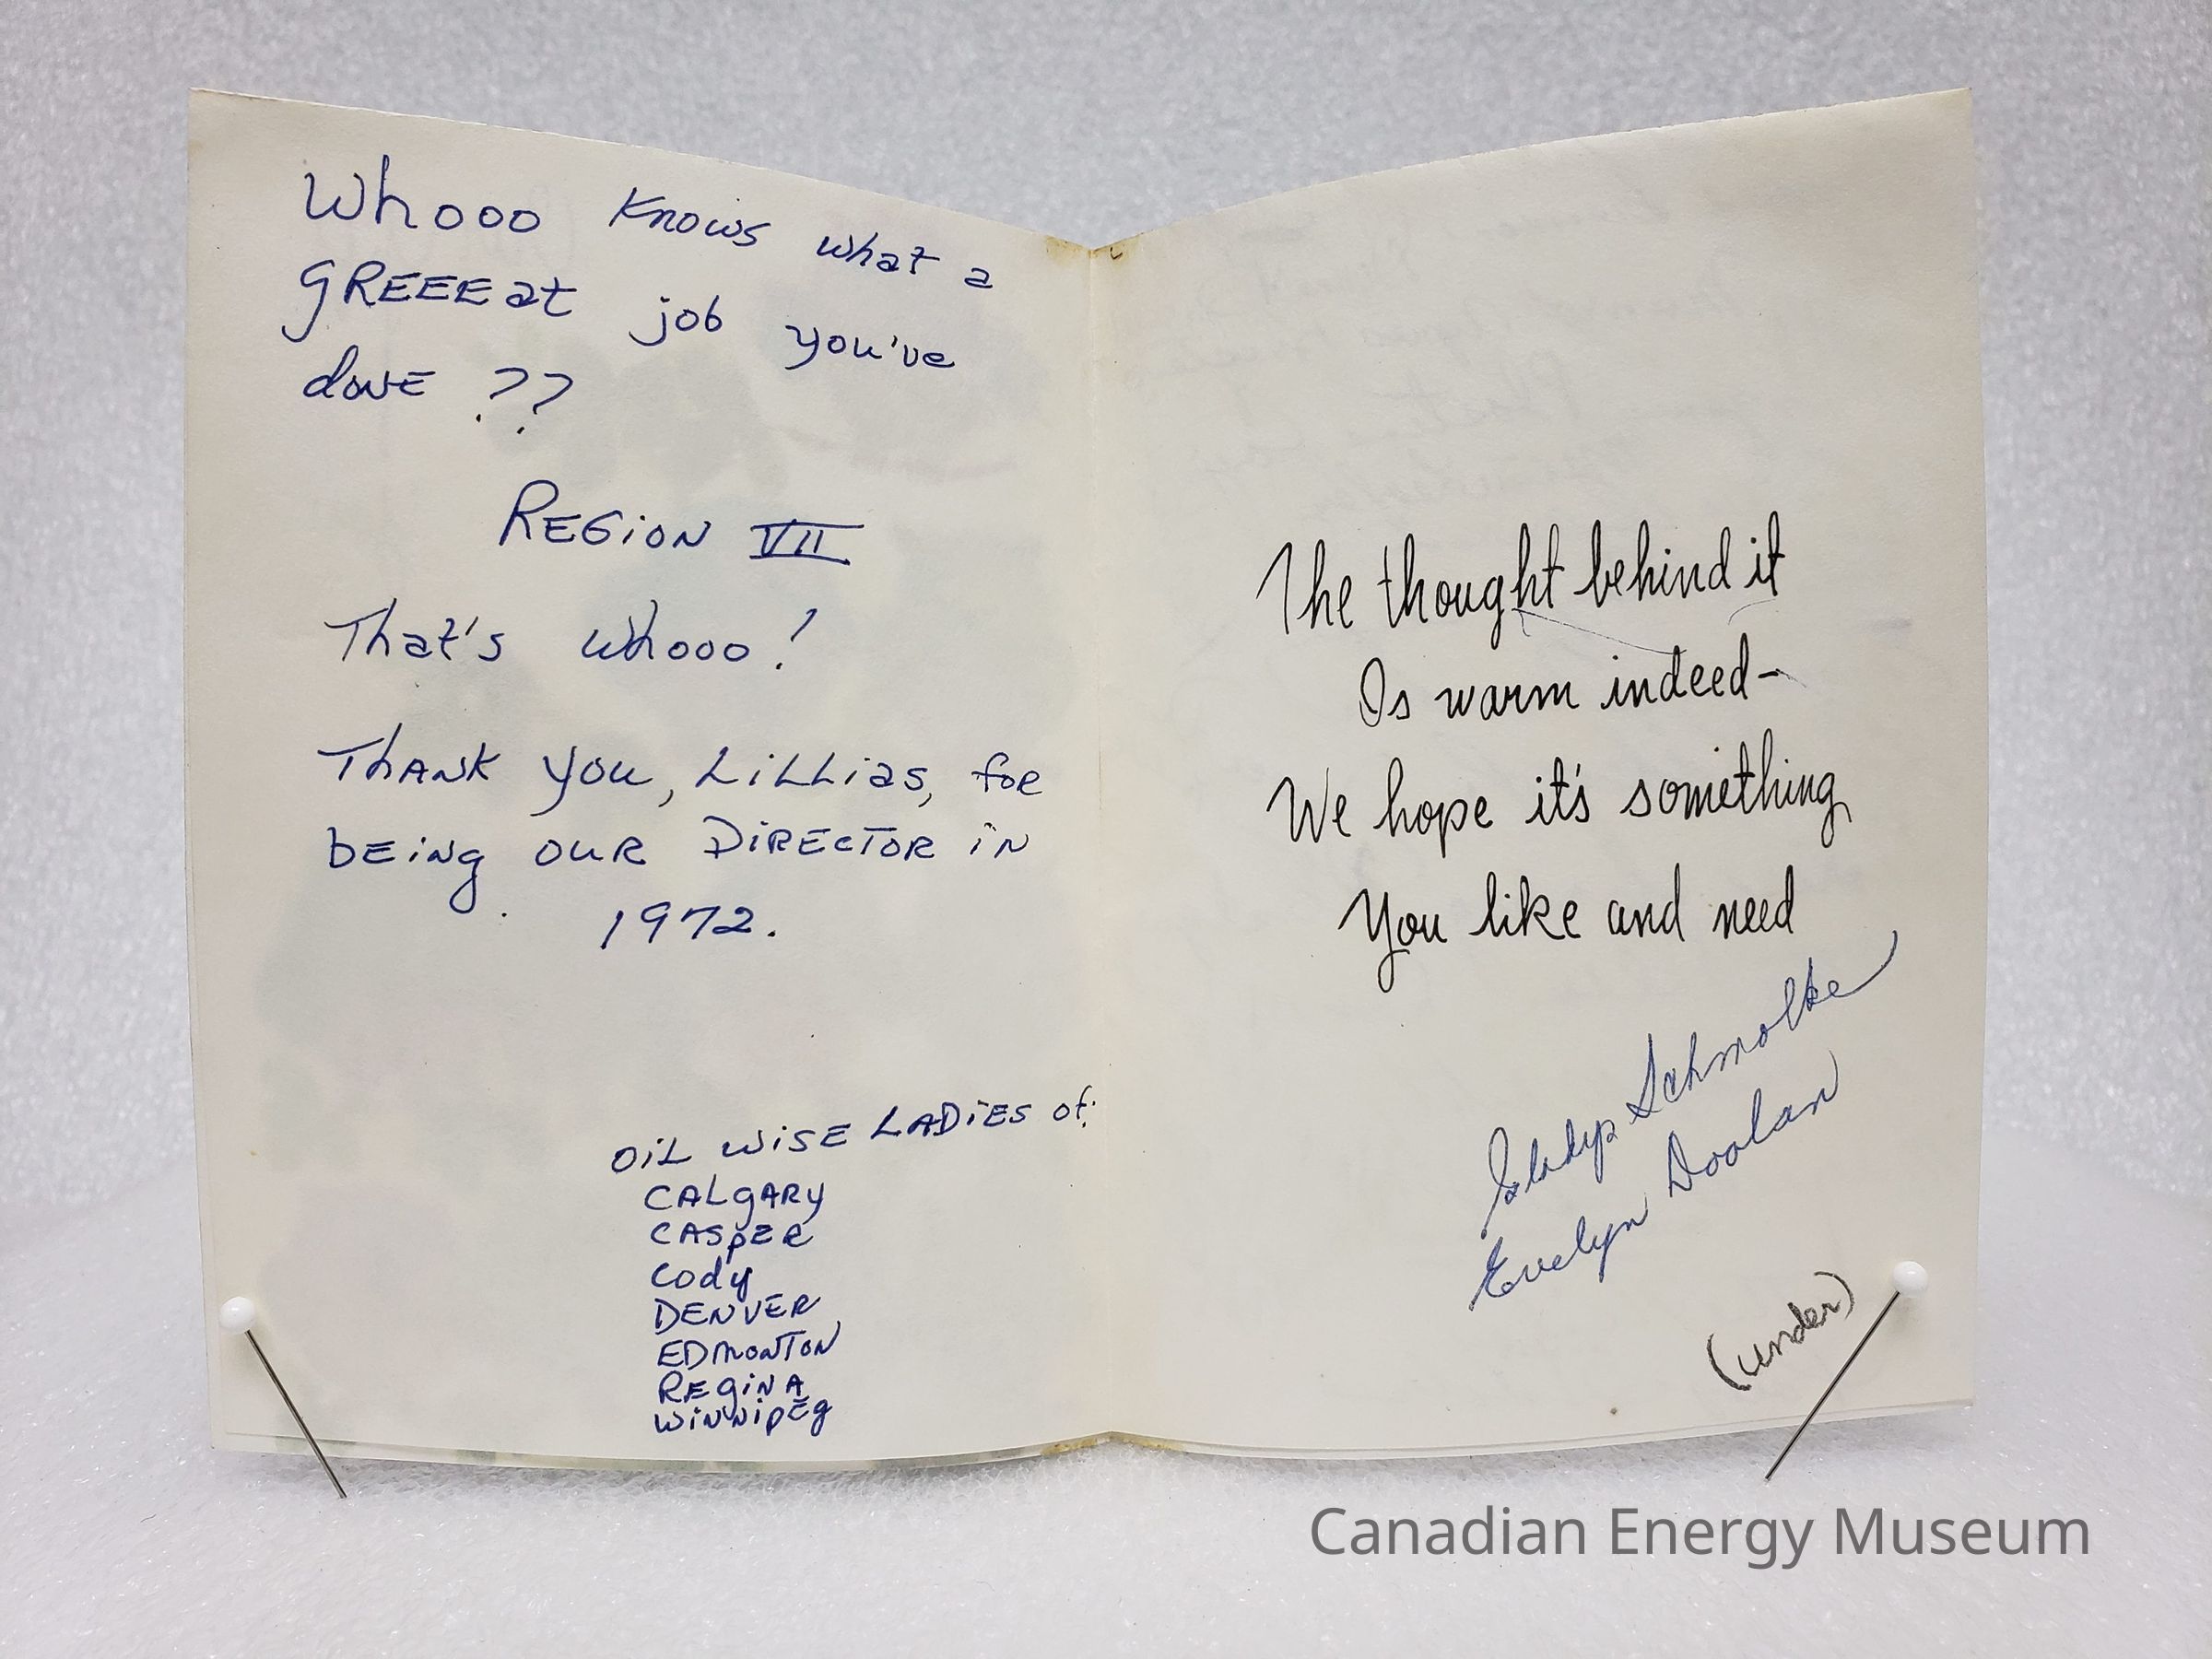 Whooo Knows what a
GREEEat job you've
done ??
REGiON VII
That's whooo!
ThANK you, LiLLias, for
bEiNg OUR DiRECTOR iN
1972.
OiL WiSE LADiES of:
CALgARy
CASpER
Cody
DENVER
EDmONTON
REgiNA
WiNNipEg
The thought behind it
Is warm indeed-
We hope it's something
You like and need
Gladys Schmolke
Evelyn Doolan
(under)
Canadian Energy Museum